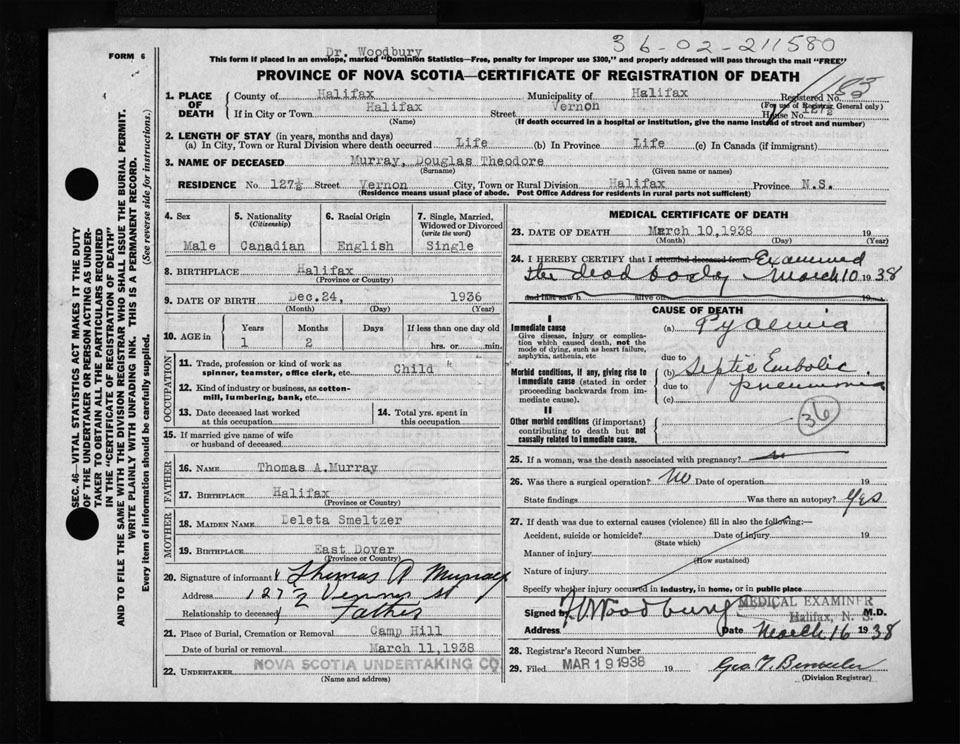 FORM 6
Dr. Woodbury
36-02-211580
This form if placed in an envelope, marked "Dominion Statistics—Free, penalty for improper use $300," and properly addressed will pass through the mail "FREE"
PROVINCE OF NOVA SCOTIA—CERTIFICATE OF REGISTRATION OF DEATH
183
1. PLACE OF DEATH
County of Halifax Municipality of Halifax Registered No.
(For use of Registrar General only)
If in City or Town Halifax Street Vernon House No. 127½
(Name) (If death occurred in a hospital or institution, give the name instead of street and number)
2. LENGTH OF STAY (in years, months and days)
(a) In City, Town or Rural Division where death occurred Life (b) In Province Life (c) In Canada (if immigrant)
3. NAME OF DECEASED Murray, Douglas Theodore
(Surname) (Given name or names)
RESIDENCE No. 127½ Street Vernon City, Town or Rural Division Halifax Province N.S.
(Residence means usual place of abode. Post Office Address for residents in rural parts not sufficient)
4. Sex
Male
5. Nationality
(Citizenship)
Canadian
6. Racial Origin
English
7. Single, Married, Widowed or Divorced
(write the word)
Single
8. BIRTHPLACE Halifax
(Province or Country)
9. DATE OF BIRTH Dec.24, 1936
(Month) (Day) (Year)
10. AGE in
Years Months Days If less than one day old
1 2 hrs. or min.
OCCUPATION
11. Trade, profession or kind of work as
spinner, teamster, office clerk, etc. Child
12. Kind of industry or business, as cotton-
mill, lumbering, bank, etc.
13. Date deceased last worked
at this occupation
14. Total yrs. spent in
this occupation
15. If married give name of wife
or husband of deceased.
FATHER
16. NAME Thomas A.Murray
17. BIRTHPLACE Halifax
(Province or Country)
MOTHER
18. MAIDEN NAME Deleta Smeltzer
19. BIRTHPLACE East Dover
(Province or Country)
20. Signature of informant Thomas A Murray
Address 127½ Vernon St
Relationship to deceased Father
21. Place of Burial, Cremation or Removal Camp Hill
Date of burial or removal March 11,1938
22. UNDERTAKER NOVA SCOTIA UNDERTAKING CO
(Name and address)
MEDICAL CERTIFICATE OF DEATH
23. DATE OF DEATH March 10,1938 19
(Month) (Day) (Year)
24. I HEREBY CERTIFY that I attended deceased from Examined
the dead body March 10 1938
and last saw h alive on 19
CAUSE OF DEATH
I
Immediate cause
Give disease, injury or complica-
tion which caused death, not the
mode of dying, such as heart failure,
asphyxia, asthenia, etc
(a) Pyaemia
due to
Morbid conditions, if any, giving rise to
immediate cause (stated in order
proceeding backwards from im-
mediate cause).
(b) Septic Embolic
due to pneumonia
(c)
II
Other morbid conditions (if important)
contributing to death but not
causally related to immediate cause.
36
25. If a woman, was the death associated with pregnancy?
26. Was there a surgical operation? No Date of operation 19
State findings Was there an autopsy? Yes
27. If death was due to external causes (violence) fill in also the following:—
Accident, suicide or homicide? Date of injury 19
(State which)
Manner of injury
(How sustained)
Nature of injury
Specify whether injury occurred in industry, in home, or in public place
Signed by Woodbury MEDICAL EXAMINER M.D.
Halifax, N. S.
Address Date March 16 1938
28. Registrar's Record Number
29. Filed MAR 19 1938 19
(Division Registrar)
SEC. 46—VITAL STATISTICS ACT MAKES IT THE DUTY
OF THE UNDERTAKER OR PERSON ACTING AS UNDER-
TAKER TO OBTAIN ALL THE PARTICULARS REQUIRED
IN THE "CERTIFICATE OF REGISTRATION OF DEATH"
AND TO FILE THE SAME WITH THE DIVISION REGISTRAR WHO SHALL ISSUE THE BURIAL PERMIT.
WRITE PLAINLY WITH UNFADING INK. THIS IS A PERMANENT RECORD.
Every item of information should be carefully supplied. (See reverse side for instructions.)